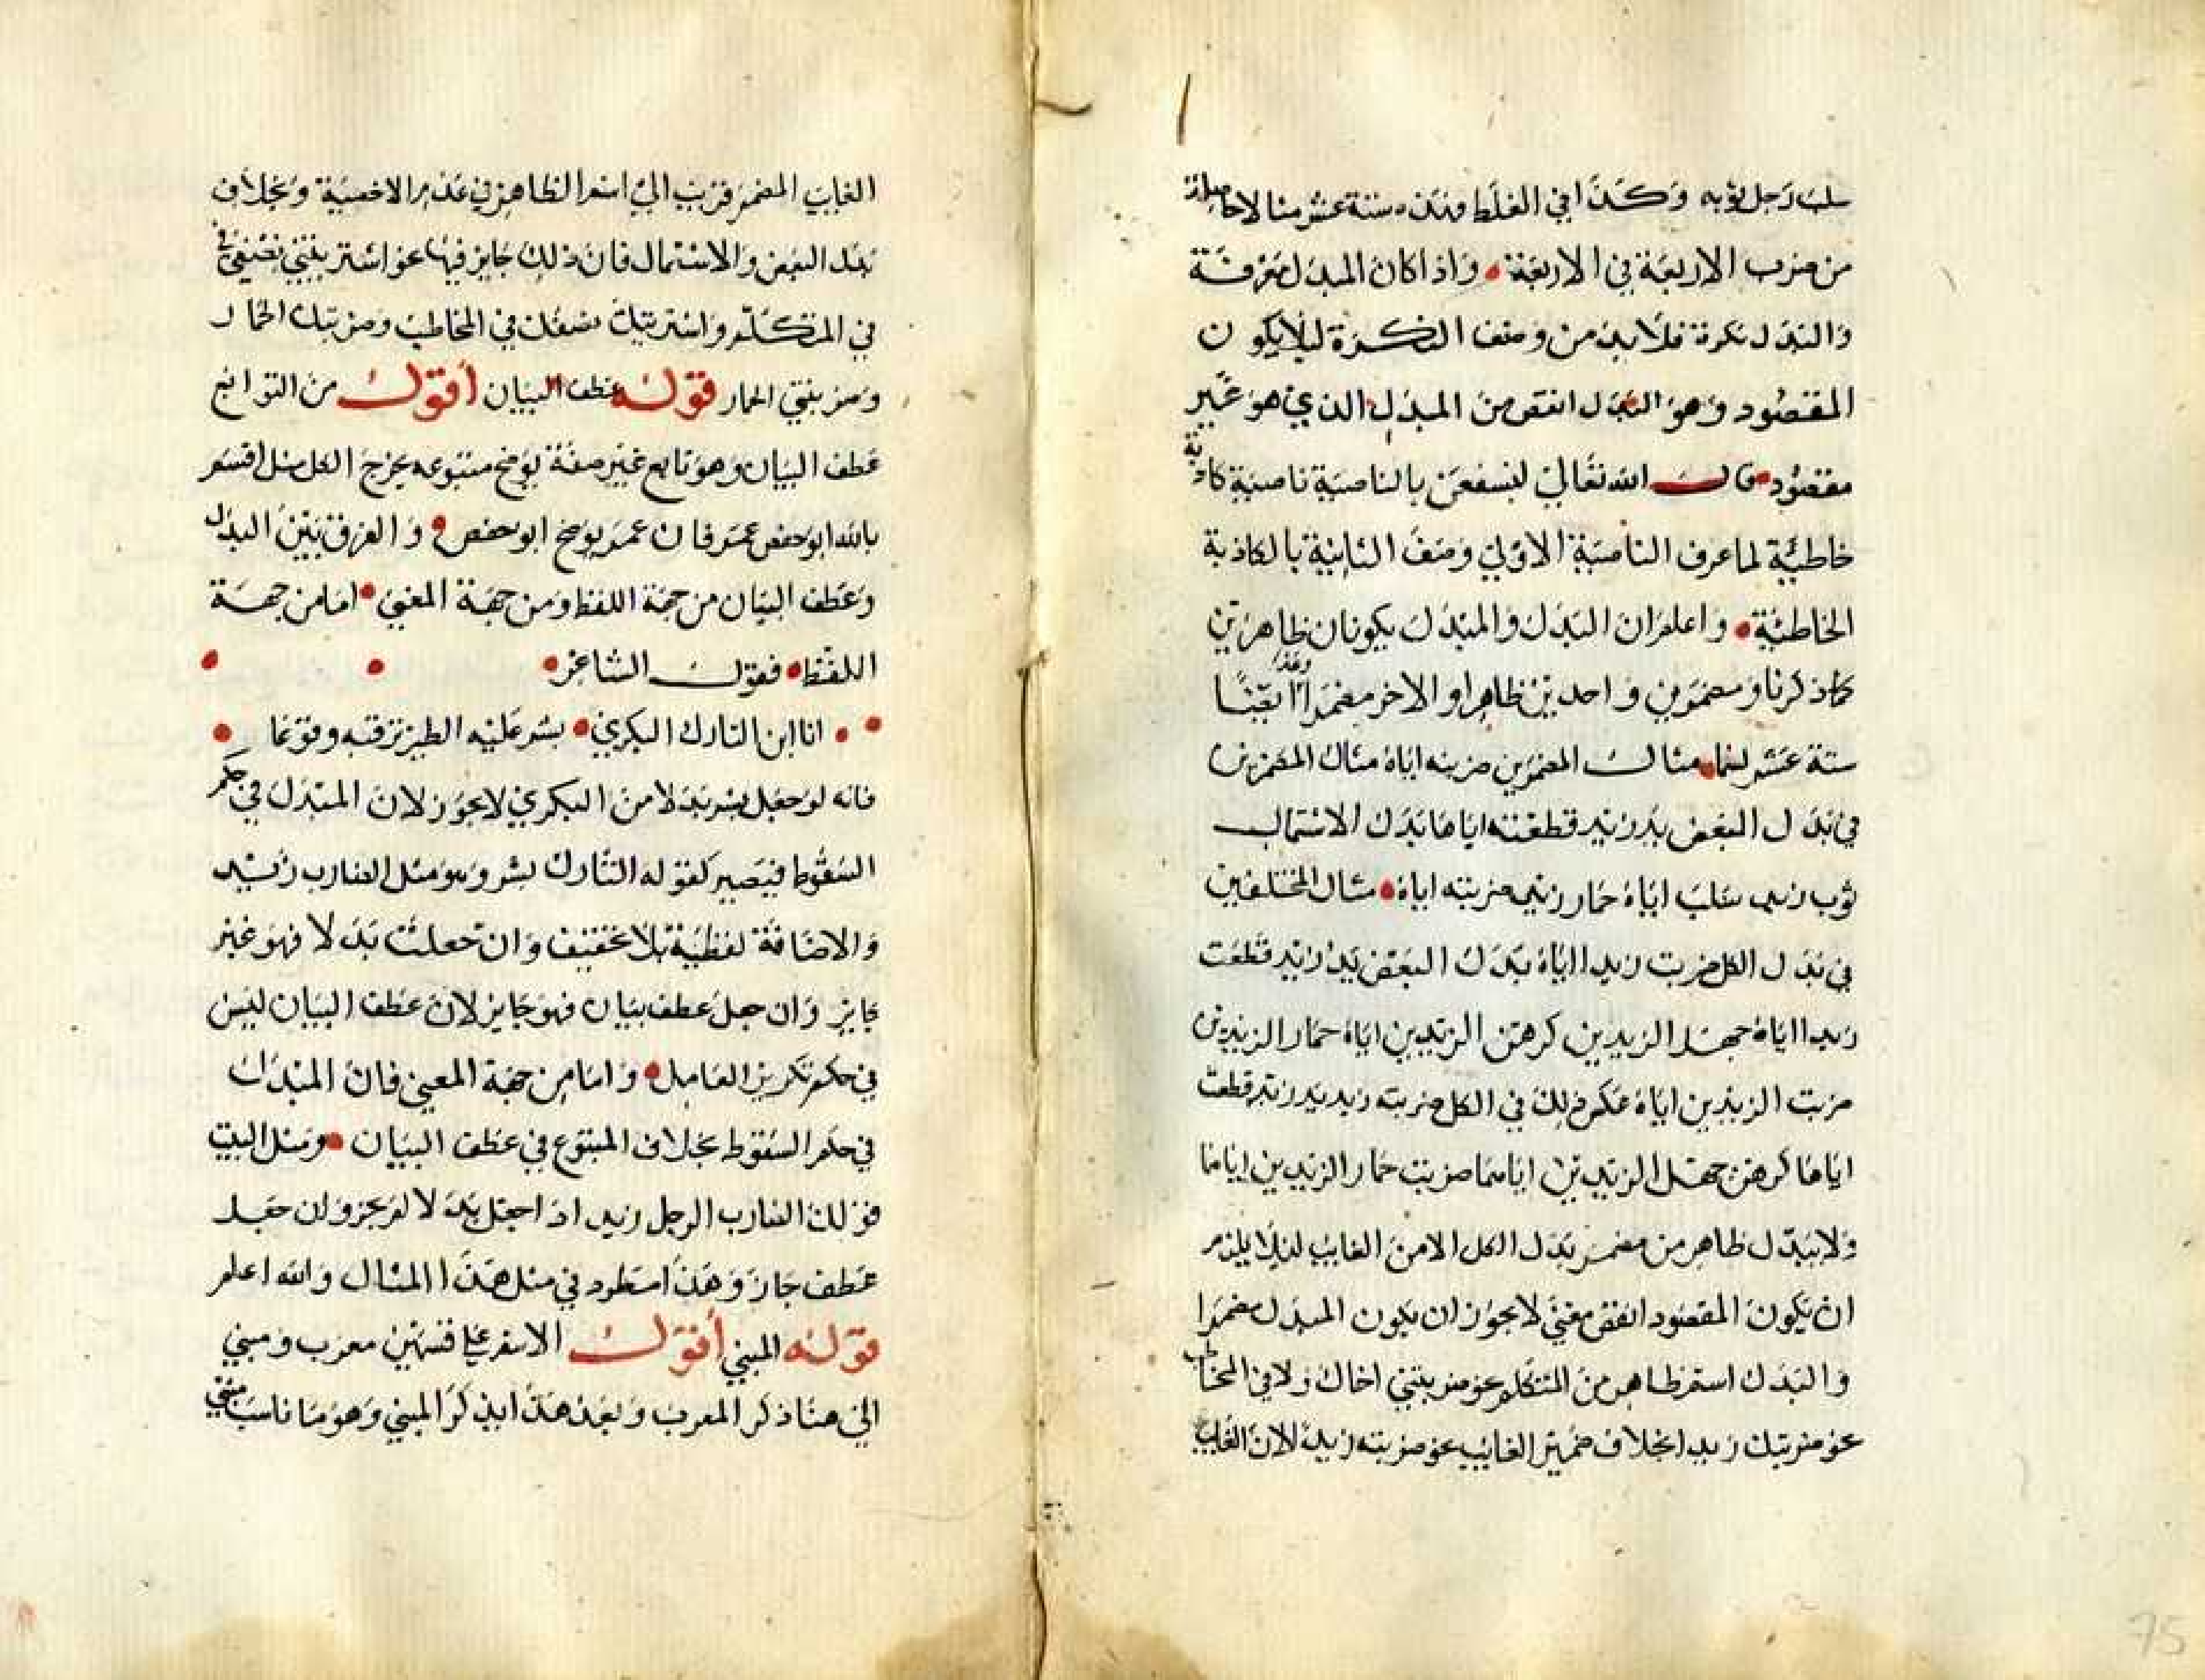 سلب رجل ثوبه وكذا في الغلط فهذه ستة عشر مثالا حاصلة
من ضرب الاربعة في الاربعة واذا كان المبدل معرفة
والبدل نكرة فلا بد من وصف النكرة ليلا يكون
المقصود وهو البدل انقص من المبدل الذي هو غير
مقصود قال الله تعالي لنسفعن بالناصية ناصية كاذبة
خاطئية لما عرف الناصية الاولي وصف الثانية بالكاذبة
الخاطئة واعلم ان البدل والمبدل يكونان ظاهرين
كما ذكرنا ومضمرين واحدين ظاهرا والاخر مضمرا وهذا ايضا
ستة عشر قسما مثال المضمرين ضربته اياه مثال المضمرين
في بدل البعض يد زيد قطعته اياها بدل الاشتمال
ثوب زيد سلب اياه حمار زيد ضربته اياه مثال المختلفين
في بدل الكل ضربت زيدا اياه بدل البعض يد زيد قطعت
زيدا اياه جهل الزيدين كرهت الزيدين اياه حمار الزيدين
ضربت الزيدين اياه عكس ذلك في الكل ضربته زيد يد زيد قطعت
اياها كرهت جهل الزيدين اياهما ضربت حمار الزيدين اياهما
ولا يبدل ظاهر من مضمر بدل الكل الا من الغايب ليلا يلزم
ان يكون المقصود انقص معني لا يجوز ان يكون المبدل مضمرا
والبدل اسم ظاهر من المتكلم نحو ضربتني اخاك ولا في المخاطب
نحو ضربتك زيدا بخلاف ضمير الغايب نحو ضربته زيدا لان الغايب
الغايب المضمر قريب الي اسم الظاهر في عدم الاخصية وبخلاف
بدل البعض والاشتمال فان ذلك جايز فيها نحو اشتريتني نصفي
في المتكلم واشتريتك نصفك في المخاطب وضربتك الحمار
وضربتني الحمار قوله عطف البيان أقول من التوابع
عطف البيان وهو تابع غير صفة يوضح متبوعه يخرج الكل مثل اقسم
بالله ابو حفص عمر فان عمر يوضح ابو حفص والفرق بين البدل
وعطف البيان من جهة اللفظ ومن جهة المعني اما من جهة
اللفظ فقول الشاعر
انا ابن التارك البكري بشر عليه الطير ترقبه وقوعا
فانه لو جعل بشر بدلا من البكري لا يجوز لان المبدل في حكم
السقوط فيصير كقوله التارك بشر وهو مثل الضارب زيد
والاضافة لفظية بلا تخفيف وان جعلت بدلا فهو غير
جايز وان جعل عطف بيان فهو جايز لان عطف البيان ليس
في حكم تكرير العامل واما من جهة المعني فان المبدل
في حكم السقوط بخلاف المتبوع في عطف البيان ومثل البيت
قولك الضارب الرجل زيد اذا جعل بدلا لم يجز وان جعل
عطف جاز وهذا مطرد في مثل هذا المثال والله اعلم
قوله المبني أقول الاسم علي قسمين معرب ومبني
الي هنا ذكر المعرب وبعد هذا يذكر المبني وهو ما ناسب مبني
75